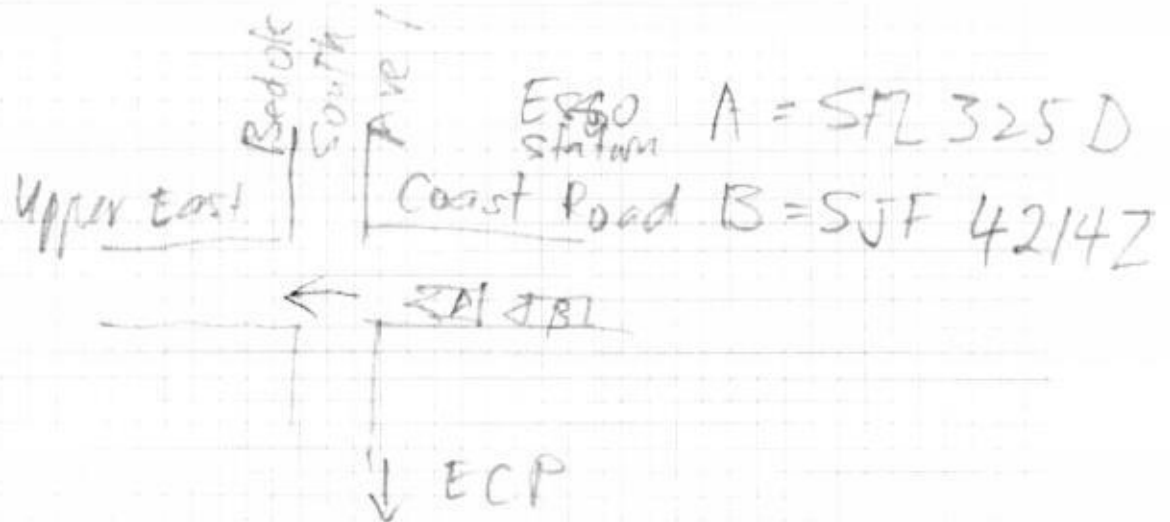 Bedok
South
Ave 1
Esso
station
A = SFZ 325 D
Upper East Coast Road
B = SJF 4214Z
A B
ECP